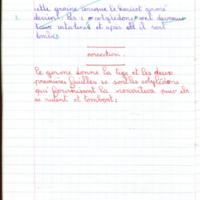 cette graine lorsque le haricot germé
devient. les 2 cotylédons ont devenus
tous ratatinés et apres ils sont
tombés
correction.
Le germe donne la tige et les deux
premières feuilles ce sont les cotylédons
qui fournissent la nourriture puis ils
se rident et tombent;